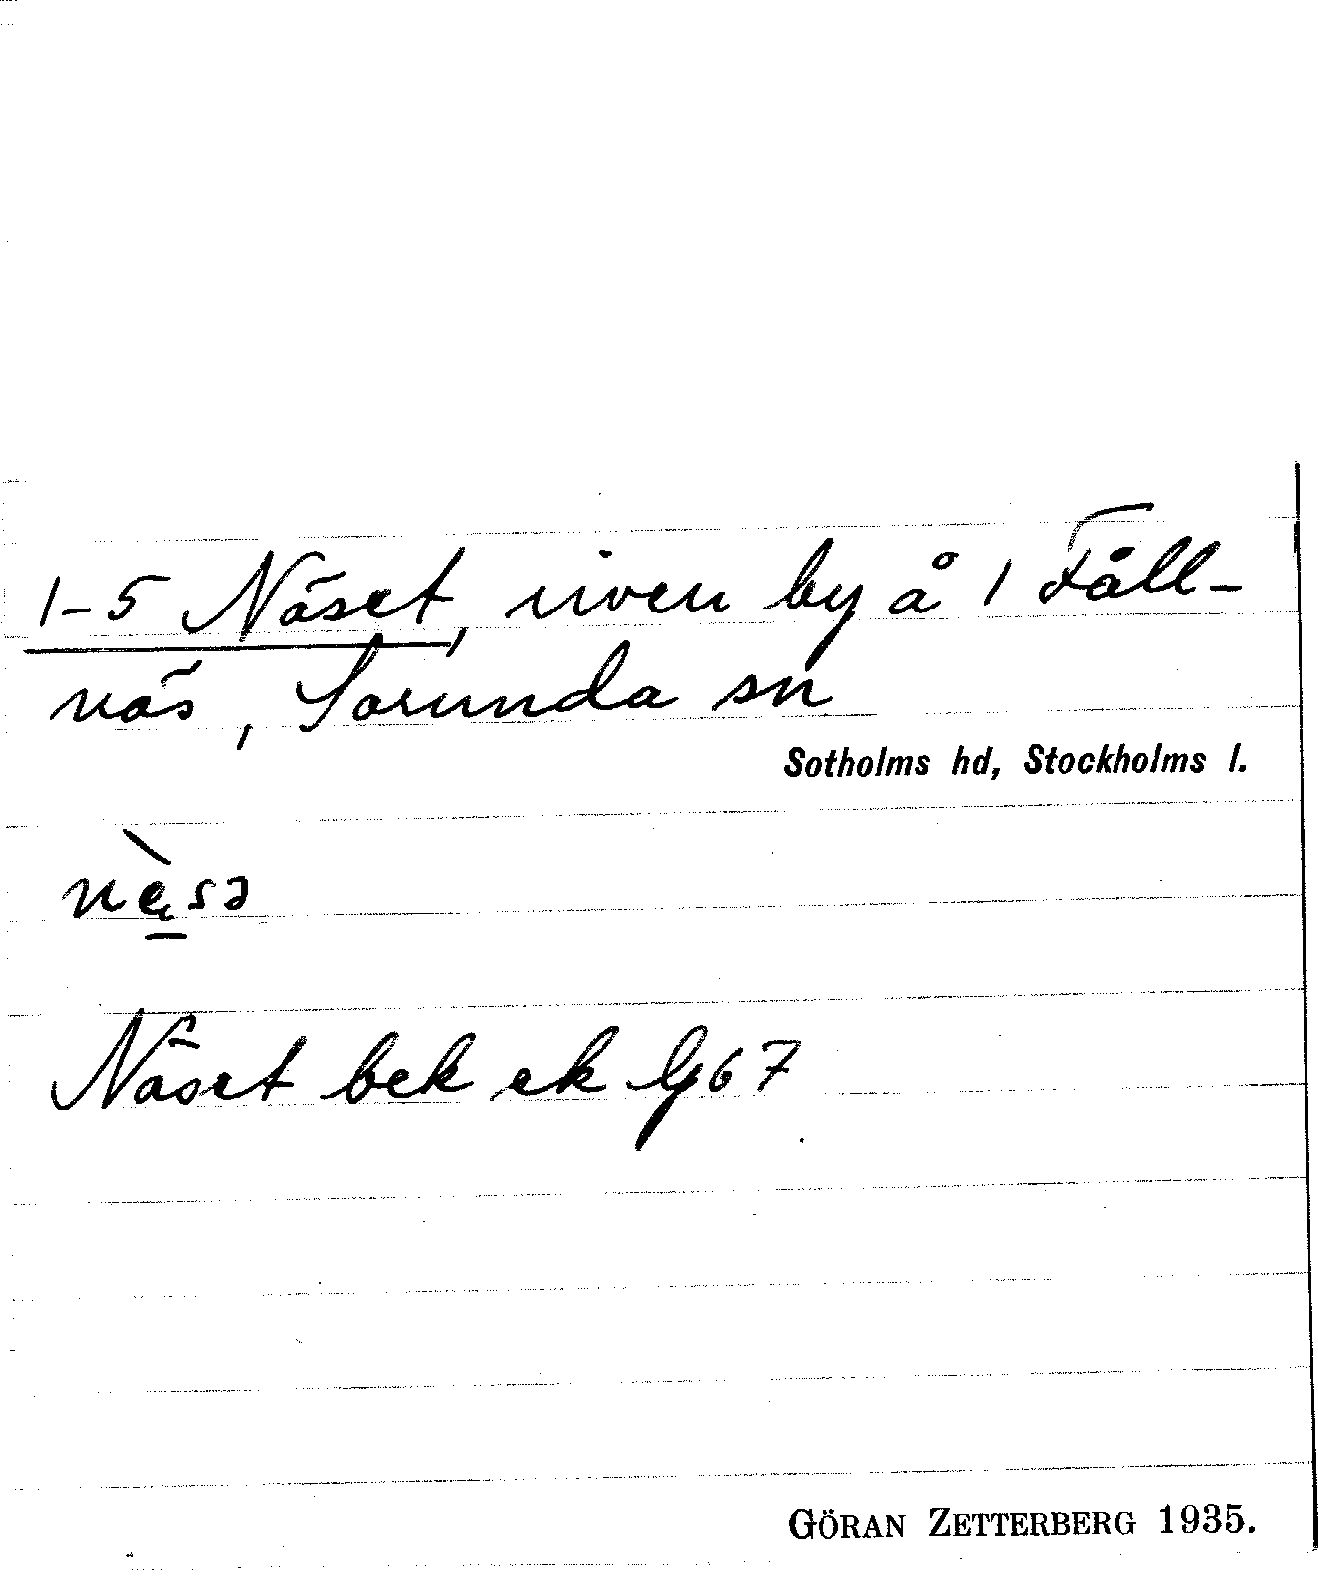 1-5 Näset, riven by å 1 Fåll-
näs, Sorunda sn
Sotholms hd, Stockholms l.
nè̱sə
Näset bek ek
GÖRAN ZETTERBERG 1935.